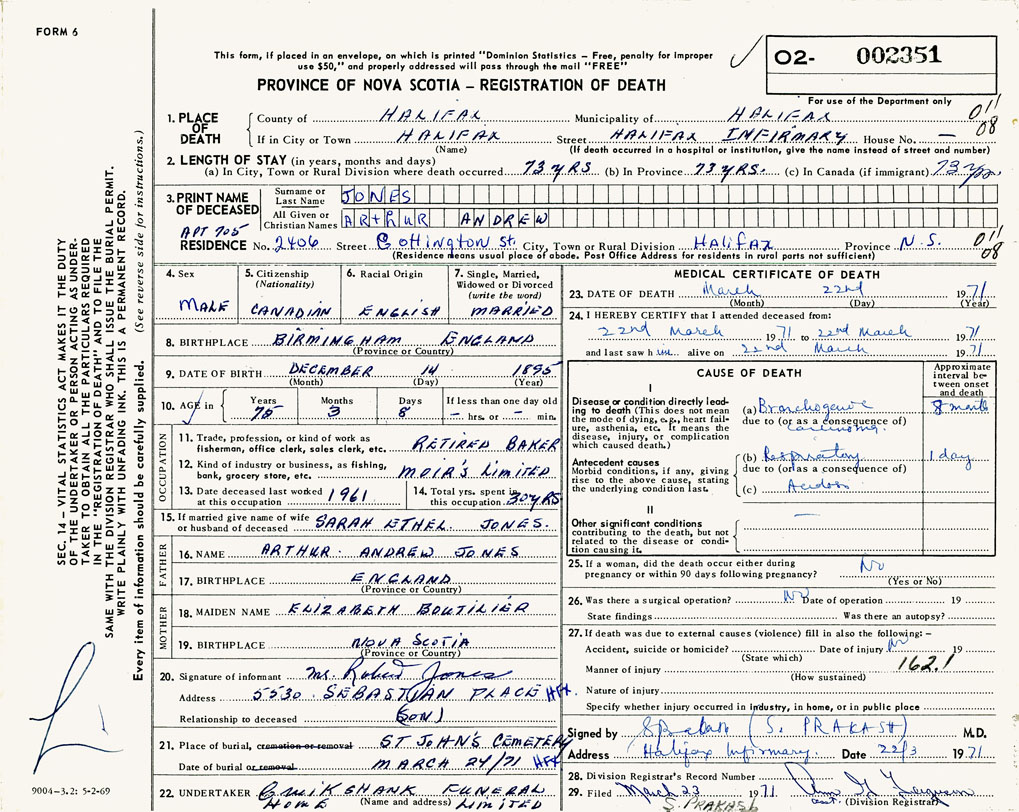 FORM 6
This form, if placed in an envelope, on which is printed "Dominion Statistics – Free, penalty for improper
use $50," and properly addressed will pass through the mail "FREE"
PROVINCE OF NOVA SCOTIA – REGISTRATION OF DEATH
02- 002351
For use of the Department only
011
08
1. PLACE OF DEATH
County of HALIFAX Municipality of HALIFAX
If in City or Town HALIFAX Street HALIFAX INFIRMARY House No. –
(Name) (If death occurred in a hospital or institution, give the name instead of street and number)
2. LENGTH OF STAY (in years, months and days)
(a) In City, Town or Rural Division where death occurred 73 YRS (b) In Province 73 YRS. (c) In Canada (if immigrant) 73 yrs.
3. PRINT NAME OF DECEASED
Surname or Last Name JONES
All Given or Christian Names ARTHUR ANDREW
APT 705
RESIDENCE No. 2406 Street Gottington St. City, Town or Rural Division HALIFAX Province N.S.
011
08
(Residence means usual place of abode. Post Office Address for residents in rural parts not sufficient)
4. Sex
MALE
5. Citizenship
(Nationality)
CANADIAN
6. Racial Origin
ENGLISH
7. Single, Married,
Widowed or Divorced
(write the word)
MARRIED
8. BIRTHPLACE BIRMINGHAM ENGLAND
(Province or Country)
9. DATE OF BIRTH DECEMBER 14 1895
(Month) (Day) (Year)
10. AGE in Years 75 Months 3 Days 8 If less than one day old
– hrs. or – min.
OCCUPATION
11. Trade, profession, or kind of work as
fisherman, office clerk, sales clerk, etc. RETIRED BAKER
12. Kind of industry or business, as fishing,
bank, grocery store, etc. MOIR'S LIMITED
13. Date deceased last worked
at this occupation 1961
14. Total yrs. spent in
this occupation 30 YRS
15. If married give name of wife
or husband of deceased SARAH ETHEL JONES.
FATHER
16. NAME ARTHUR ANDREW JONES
17. BIRTHPLACE ENGLAND
(Province or Country)
MOTHER
18. MAIDEN NAME ELIZABETH BOUTILIER
19. BIRTHPLACE NOVA SCOTIA
(Province or Country)
20. Signature of informant Mr. Robert Jones
Address 5530 SEBASTIAN PLACE HFX.
Relationship to deceased (SON)
21. Place of burial, cremation or removal ST JOHN'S CEMETERY
Date of burial or removal MARCH 24/71 HFX
22. UNDERTAKER CRUIKSHANK FUNERAL
HOME (Name and address) LIMITED
MEDICAL CERTIFICATE OF DEATH
23. DATE OF DEATH March 22nd 1971
(Month) (Day) (Year)
24. I HEREBY CERTIFY that I attended deceased from:
22nd March 1971 to 22nd March 1971
and last saw him alive on 22nd March 1971
CAUSE OF DEATH
Approximate
interval be-
tween onset
and death
I
Disease or condition directly lead-
ing to death (This does not mean
the mode of dying, e.g., heart fail-
ure, asthenia, etc. It means the
disease, injury, or complication
which caused death.)
(a) Bronchogenic 8 month
due to (or as a consequence of)
carcinoma.
Antecedent causes
Morbid conditions, if any, giving
rise to the above cause, stating
the underlying condition last.
(b) Respiratory 1 day
due to (or as a consequence of)
(c) Acidosis
II
Other significant conditions
contributing to the death, but not
related to the disease or condi-
tion causing it. –
25. If a woman, did the death occur either during
pregnancy or within 90 days following pregnancy? No
(Yes or No)
26. Was there a surgical operation? No Date of operation 19
State findings Was there an autopsy?
27. If death was due to external causes (violence) fill in also the following: –
Accident, suicide or homicide? Date of injury No 19
(State which)
Manner of injury 162.1
(How sustained)
Nature of injury
Specify whether injury occurred in industry, in home, or in public place
Signed by (S. PRAKASH) M.D.
Address Halifax Infirmary. Date 22/3 1971
28. Division Registrar's Record Number
29. Filed March 23 1971
Division Registrar
S. PRAKASH
SEC. 14 – VITAL STATISTICS ACT MAKES IT THE DUTY
OF THE UNDERTAKER OR PERSON ACTING AS UNDER-
TAKER TO OBTAIN ALL THE PARTICULARS REQUIRED
IN THE "REGISTRATION OF DEATH" AND TO FILE THE
SAME WITH THE DIVISION REGISTRAR WHO SHALL ISSUE THE BURIAL PERMIT.
WRITE PLAINLY WITH UNFADING INK. THIS IS A PERMANENT RECORD.
Every item of information should be carefully supplied. (See reverse side for instructions.)
9004-3.2: 5-2-69